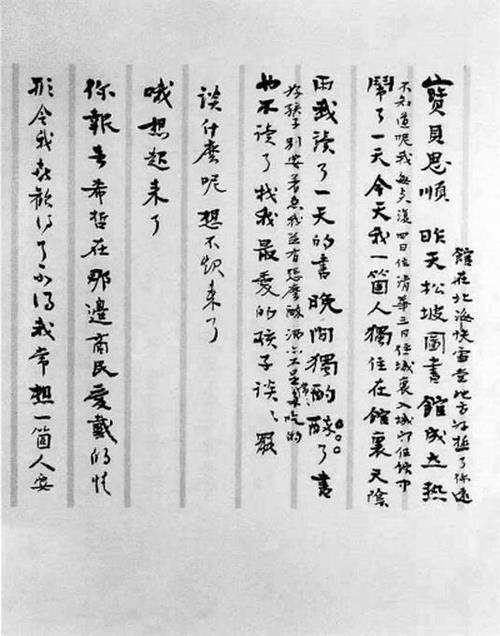 館在北海快雪堂地方好極了你還
寶貝思順 昨天松坡圖書館成立熱
不知道呢我每來復四日住清華三日住城裏入城即住館中
鬧了一天今天我一箇人獨住在館裏天陰
雨我讀了一天的書晚間獨酌醉了書
好孩子別要着急我並冇怎麼醉酒亦不是常々多吃的
也不读了找我最愛的孩子談々罷
談什麼呢 想不起来了
哦想起来了
你報告希哲在那邊商民愛戴的情
形令我喜歡得了不得我常想一箇人要